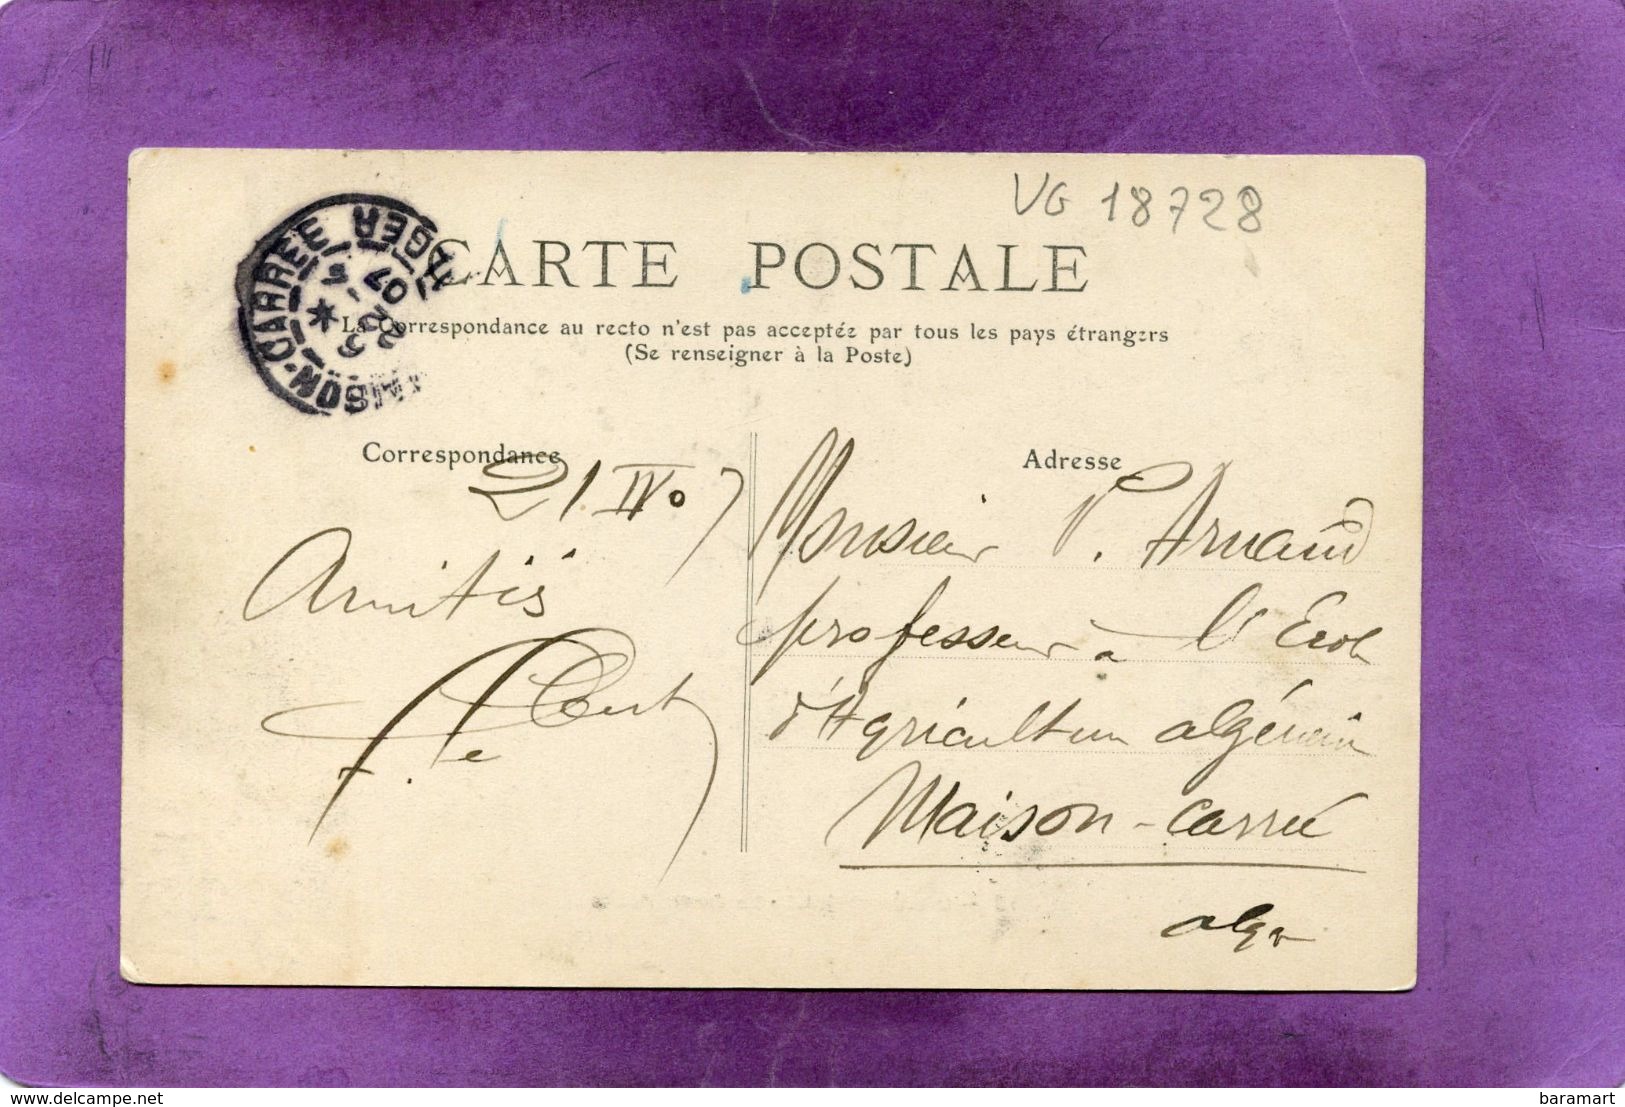 VG 18728
MAISON-CARRÉE ALGER
5
22
07
CARTE POSTALE
La Correspondance au recto n'est pas acceptée par tous les pays étrangers
(Se renseigner à la Poste)
Correspondance
21 IV 07
Amitiés
Adresse
Monsieur P. Arnaud
professeur à l'Ecole
d'Agriculture algérienne
Maison-carrée
alger
delcampe.net
baramart